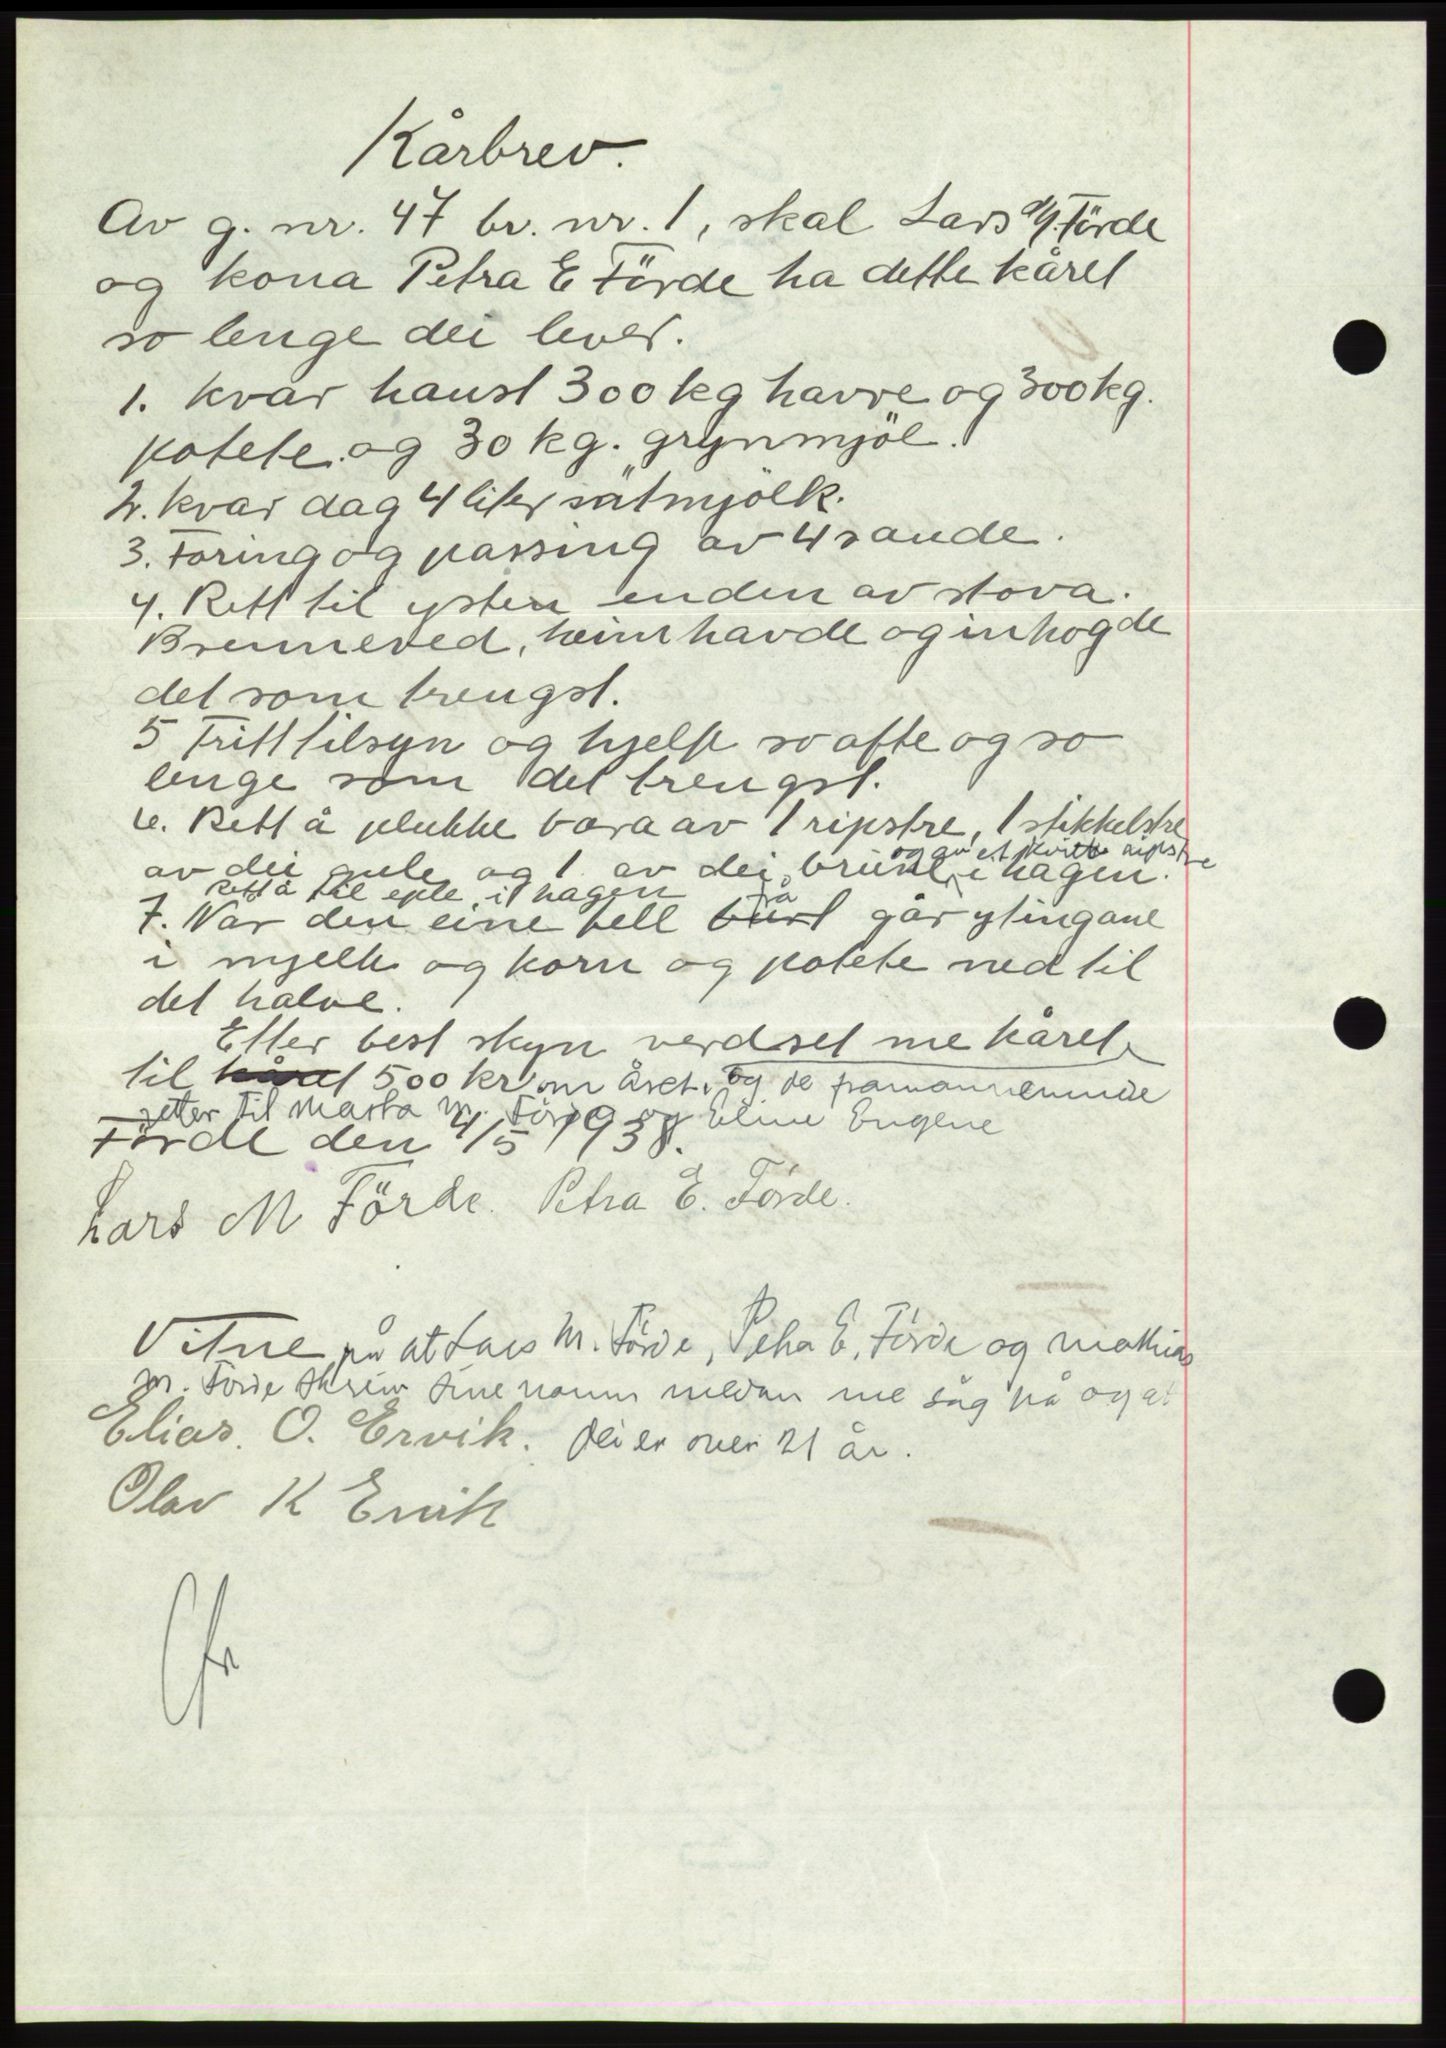 Kårbrev.
Av g. nr. 47 br. nr. 1, skal Lars M. Förde
og kona Petra E Förde ha dette kåret
so lenge dei lever.
1. kvar haust 300 kg havre og 300 kg.
potete og 30 kg. grynmjöl.
2. kvar dag 4 liter sötmjölk.
3. Foring og passing av 4 saude.
4. Rett til ysten enden av stova.
Brenneved, heimhavde og inhogde
det som trengst.
5 Fritt tilsyn og hjelp so ofte og so
lenge som det trengst.
6. Rett å plukke bæra av 1 ripstre, 1 stikkelstre
og av et kvitt ripstre
av dei gule og 1 av dei brune i hagen.
Rett å til eple i hagen
7. Nar den eine fell frå går ytingane
i mjelk og korn og potete ned til
det halve.
Etter best skyn verdset me kåret
til kåret 500 kr om året. og de framannemnde
retter til Marta M. Förde og Eline Eugene
Förde den 4/5 1938.
Lars M Förde. Petra E. Förde.
Vitne på at Lars M. Förde, Petra E. Förde og Mathias
M. Förde skreiv sine namn medan me såg på og at
Elias. O. Ervik. dei er over 21 år.
Olav K Ervik